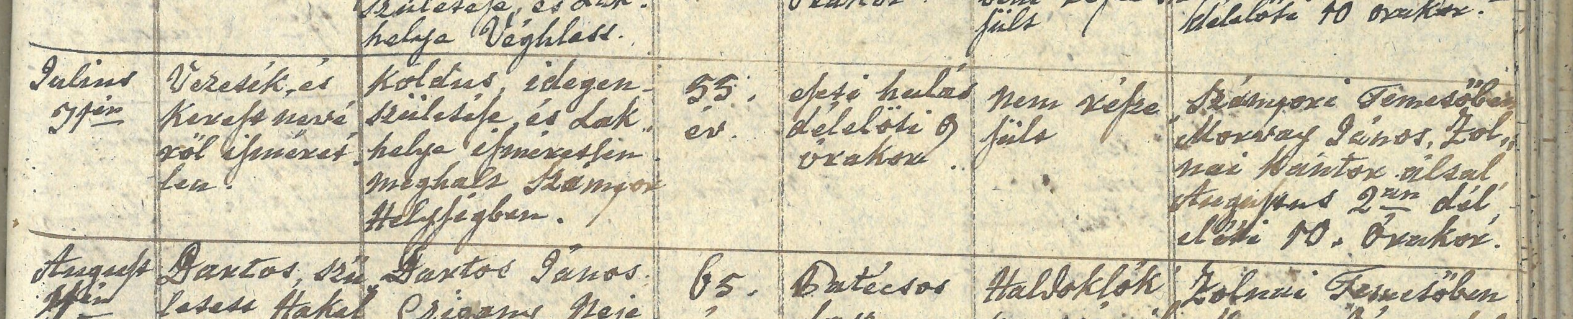 születése, és Lak-
helye Véghless.
sült
délelőti 10 órakor.
Julius
Vezeték, és
Kereszt nevé
ről isméret
len.
Koldus, idegen-
születése, és Lak-
helye isméretlen.
meghalt Szampor
Helységben.
55.
év.
esti hulás
délelőti 9
órakor
nem része
sült
Számpori Temetőben
Morvay János, Zol-
nai Kántor által,
Augustus 2án dél
előti 10. órakor.
August
Bartos, szü-
letett Hakel
Bartos János
Czigány Neje
65.
Haldoklók
Zolnai Temetőben